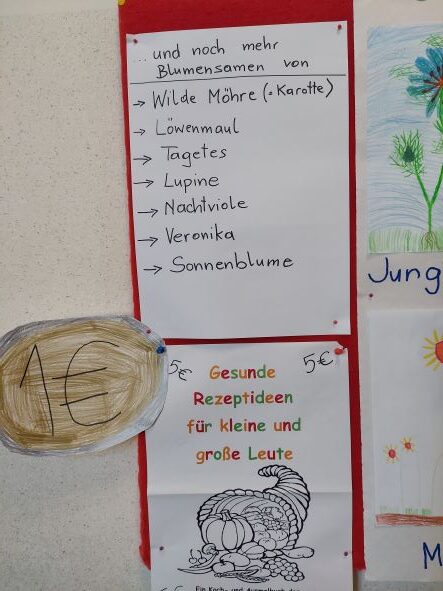 ... und noch mehr
Blumensamen von
→ Wilde Möhre (= Karotte)
→ Löwenmaul
→ Tagetes
→ Lupine
→ Nachtviole
→ Veronika
→ Sonnenblume
Jung
1€
5€
5€
Gesunde
Rezeptideen
für kleine und
große Leute
M
Ein Koch- und Ausmalbuch der